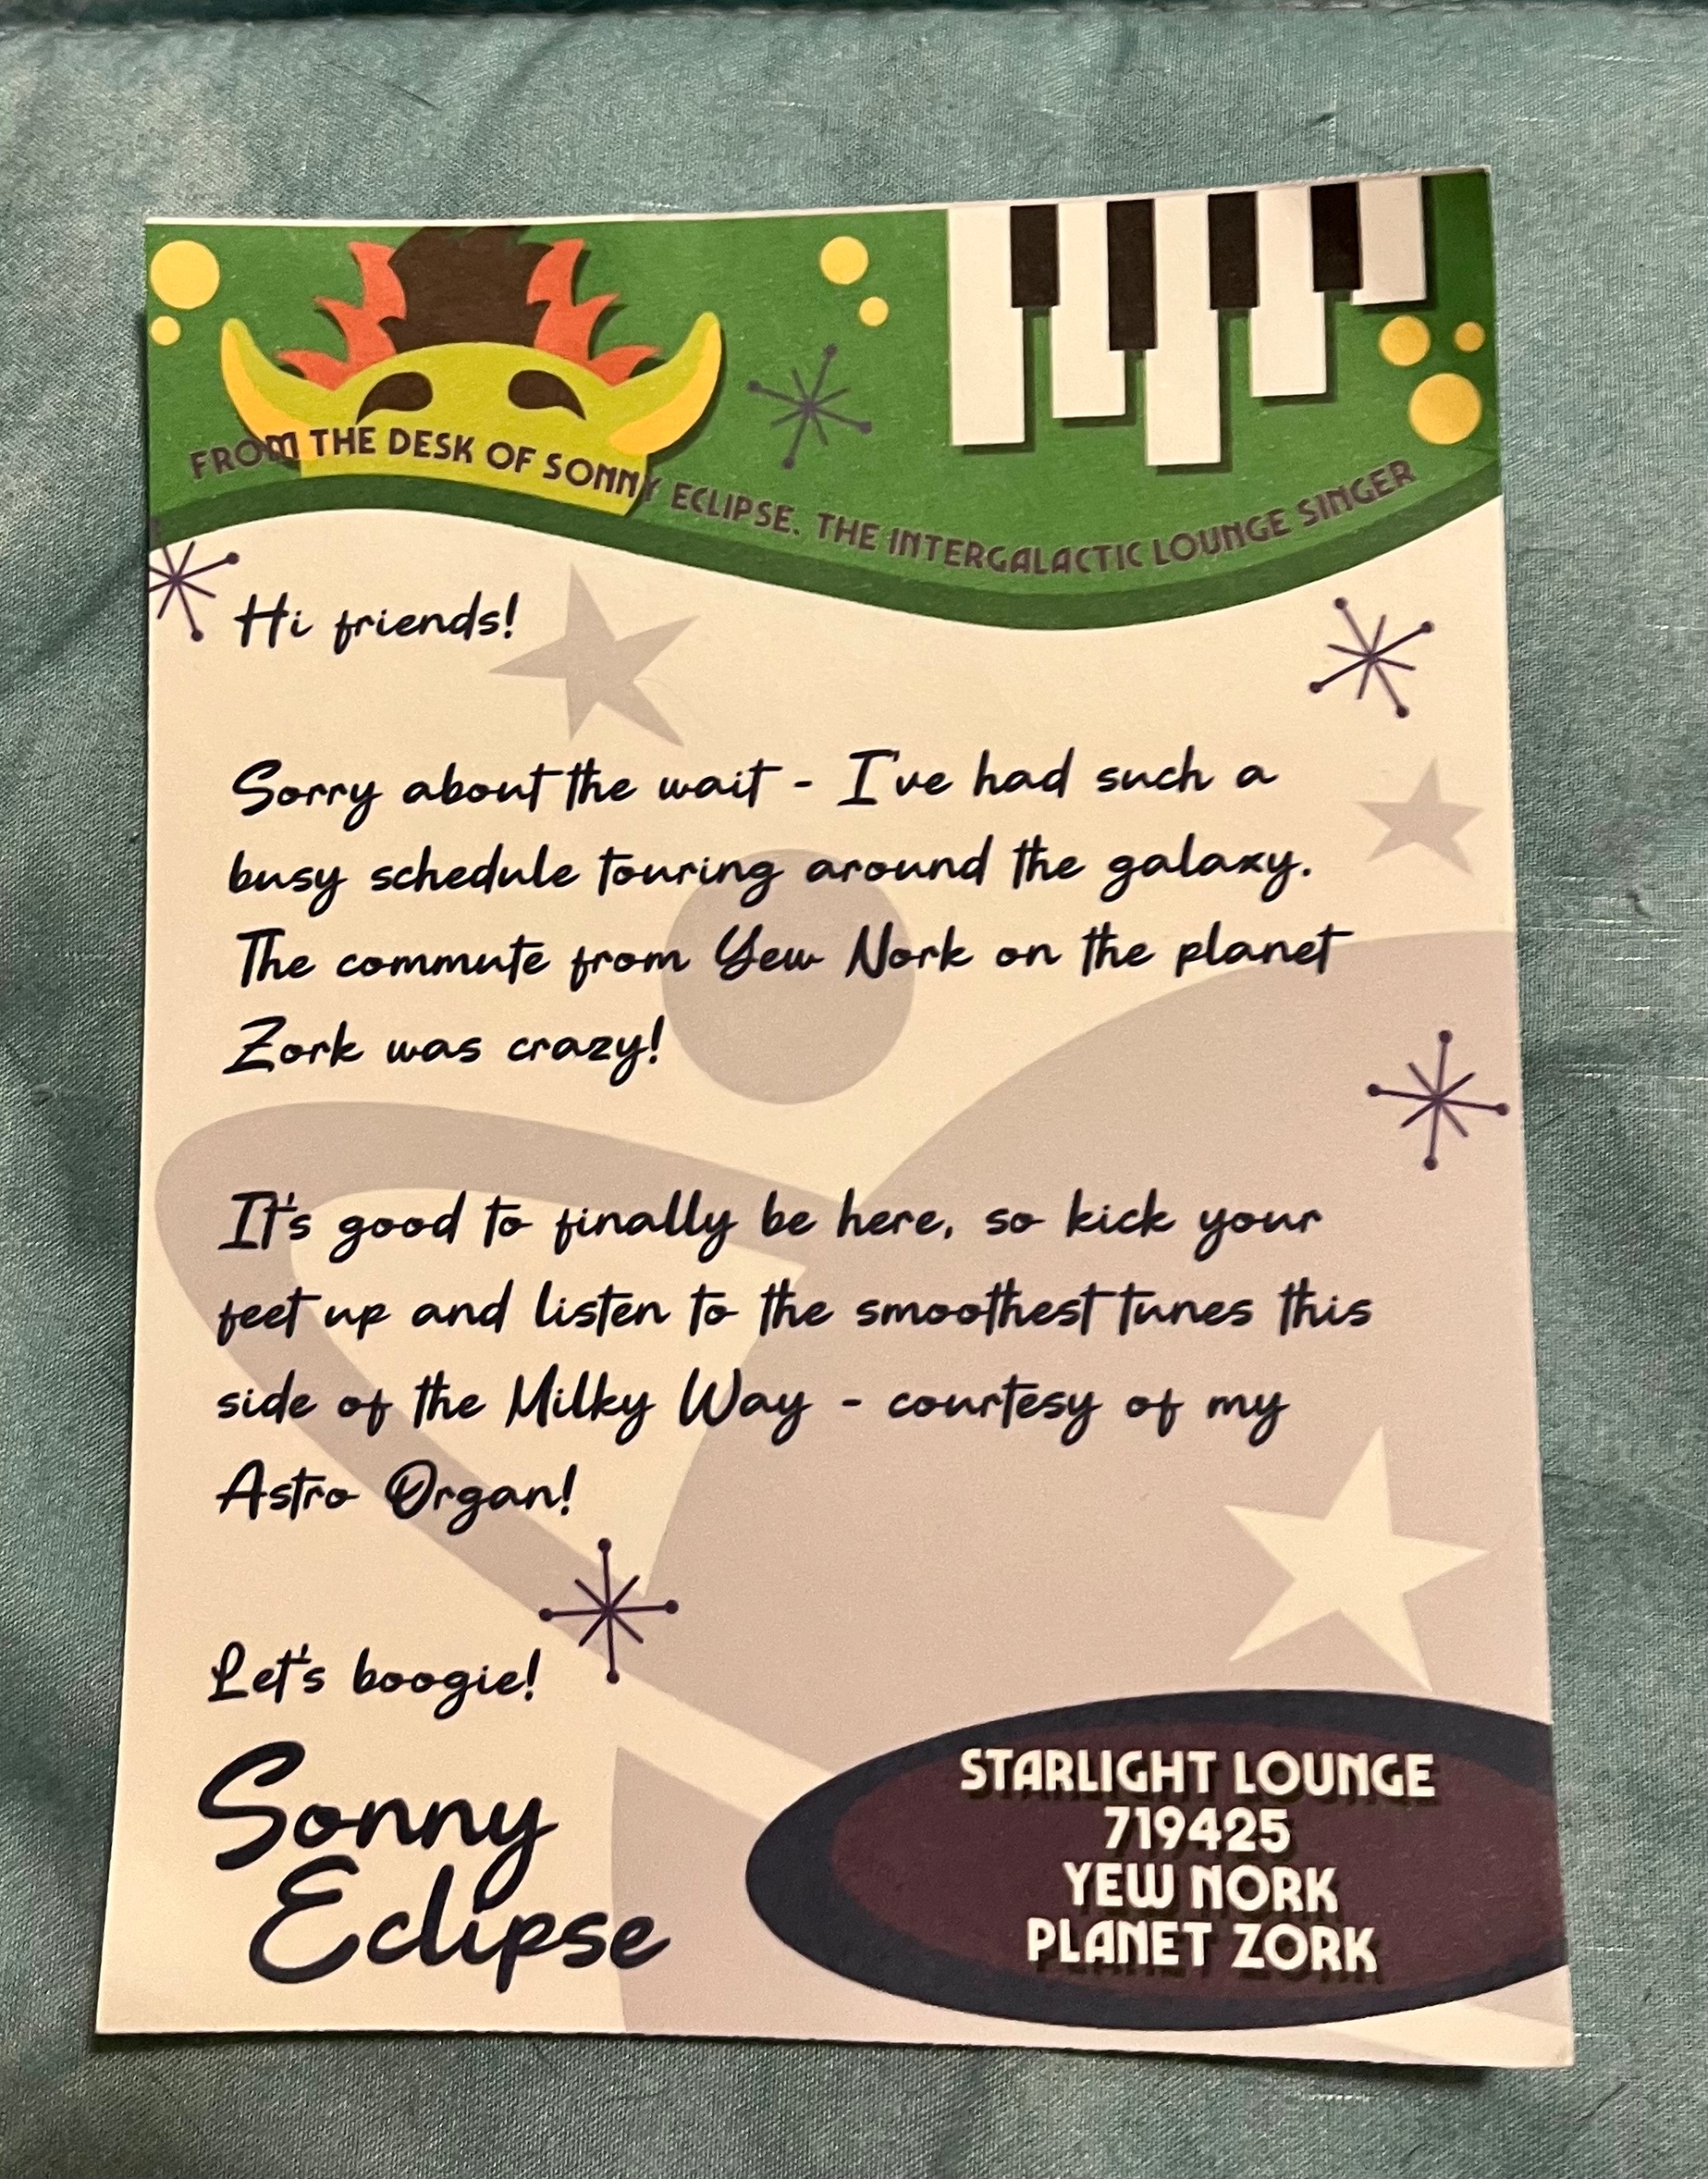 FROM THE DESK OF SONNY ECLIPSE. THE INTERGALACTIC LOUNGE SINGER
Hi friends!
Sorry about the wait - I've had such a
busy schedule touring around the galaxy.
The commute from Yew Nork on the planet
Zork was crazy!
It's good to finally be here, so kick your
feet up and listen to the smoothest tunes this
side of the Milky Way - courtesy of my
Astro Organ!
Let's boogie!
Sonny
Eclipse
STARLIGHT LOUNGE
719425
YEW NORK
PLANET ZORK